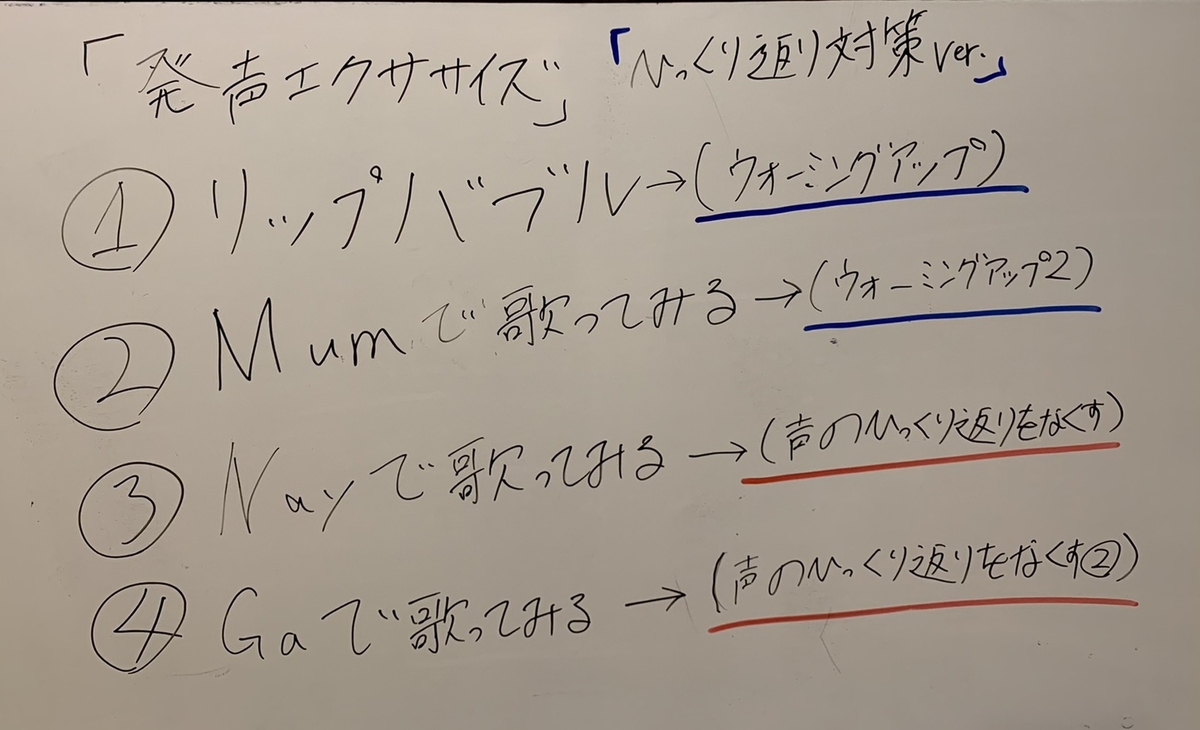 「発声エクササイズ」「ひっくり返り対策ver.」
① リップバブル→(ウォーミングアップ)
② Mumで歌ってみる→(ウォーミングアップ2)
③ Nayで歌ってみる→(声のひっくり返りをなくす)
④ Gaで歌ってみる→(声のひっくり返りをなくす②)